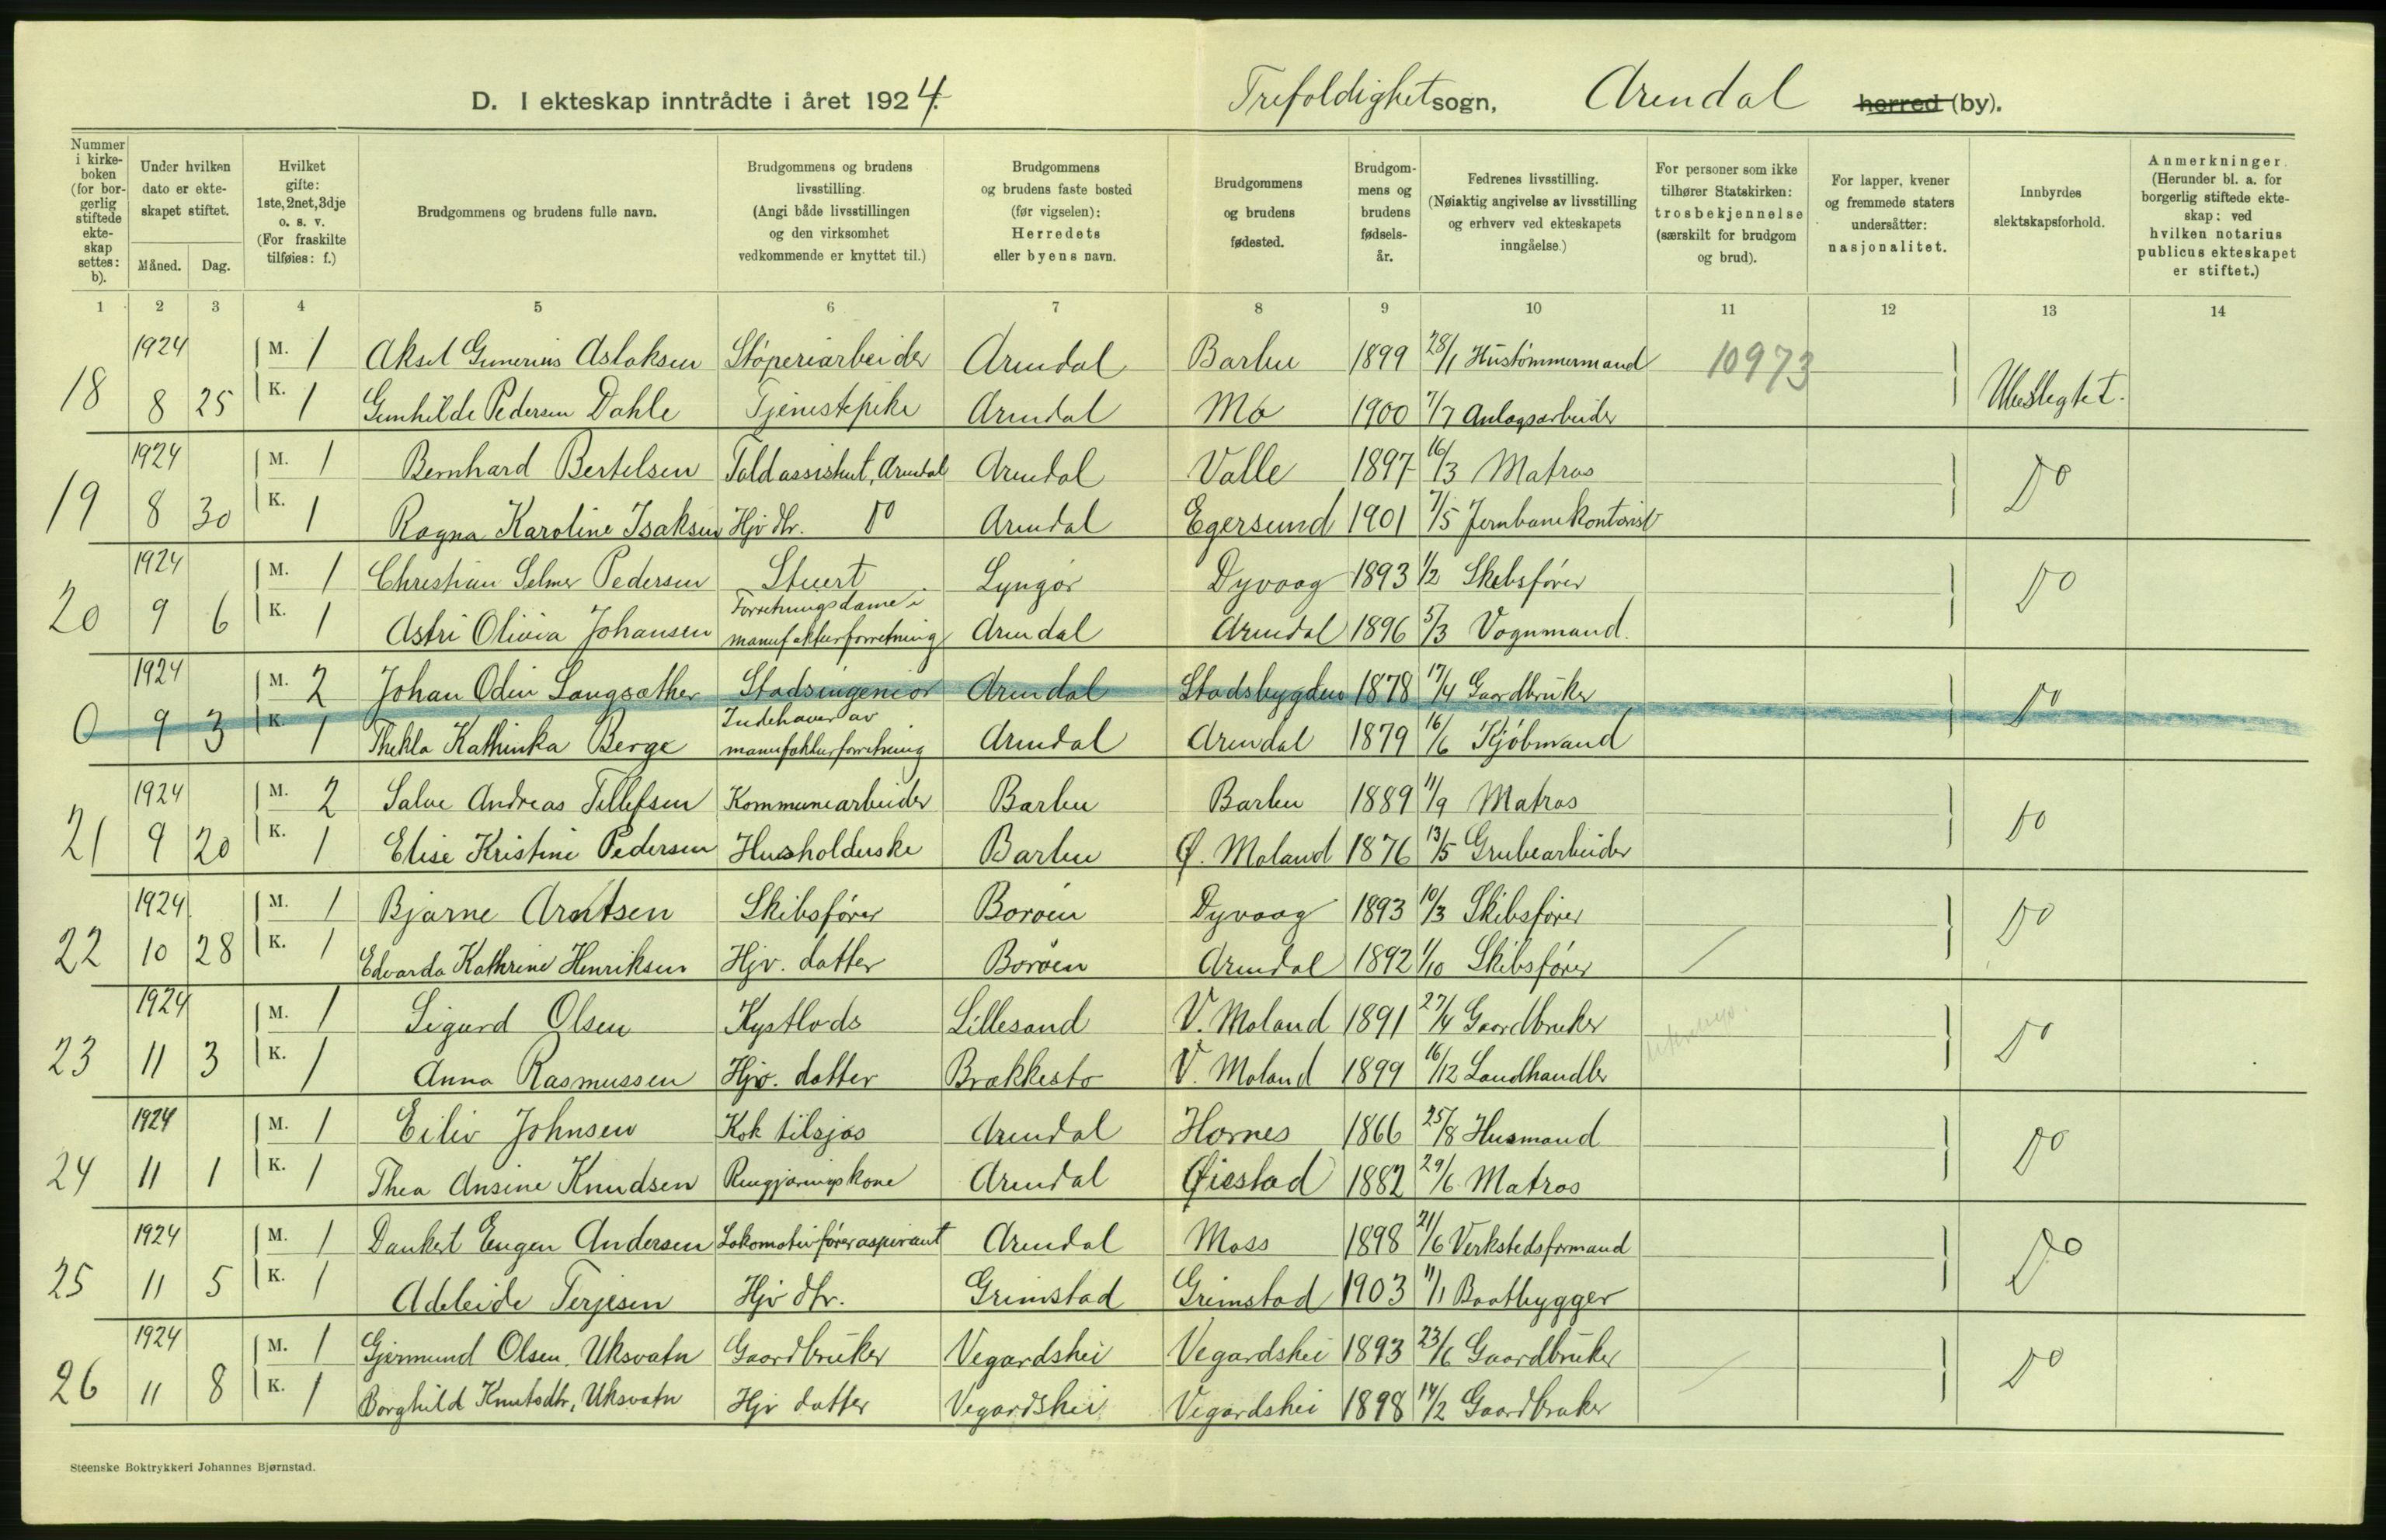 D. I ekteskap inntrådte i året 1924.
Trefoldighet sogn, Arendal herred (by).
Nummer i kirkeboken (for borgerlig stiftede ekteskap settes: b).
Under hvilken dato er ekteskapet stiftet.
Måned. Dag.
Hvilket gifte: 1ste, 2net, 3dje o. s. v. (For fraskilte tilføies: f.)
Brudgommens og brudens fulle navn.
Brudgommens og brudens livsstilling. (Angi både livsstillingen og den virksomhet vedkommende er knyttet til.)
Brudgommens og brudens faste bosted (før vigselen): Herredets eller byens navn.
Brudgommens og brudens fødested.
Brudgommens og brudens fødselsår.
Fedrenes livsstilling. (Nøiaktig angivelse av livsstilling og erhverv ved ekteskapets inngåelse.)
For personer som ikke tilhører Statskirken: trosbekjennelse (særskilt for brudgom og brud).
For lapper, kvener og fremmede staters undersåtter: nasjonalitet.
Innbyrdes slektskapsforhold.
Anmerkninger. (Herunder bl. a. for borgerlig stiftede ekteskap: ved hvilken notarius publicus ekteskapet er stiftet.)
1 2 3 4 5 6 7 8 9 10 11 12 13 14
1924 M. 1 Aksel Gunerius Aslaksen Støperiarbeider Arendal Barbu 1899 28/1 Hustømmermand 10973
18 8 25 K. 1 Gunhilde Pedersen Dahle Tjenestepike Arendal Mo 1900 7/7 Anlægsarbeider Ubeslegtet.
1924 M. 1 Bernhard Bertelsen Toldassistent, Arendal Arendal Valle 1897 16/3 Matros
19 8 30 K. 1 Ragna Karoline Isaksen Hjv dtr. Do Arendal Egersund 1901 7/5 Jernbanekontorist Do
1924 M. 1 Christian Selmer Pedersen Stuert Lyngør Dyvaag 1893 1/2 Skibsfører
20 9 6 K. 1 Astri Olivia Johansen Forretningsdame i manufakturforretning Arendal Arendal 1896 5/3 Vognmand. Do
1924 M. 2 Johan Odin Langsæther Stadsingeniør Arendal Stadsbygden 1878 17/4 Gaardbruker
0 9 3 K. 1 Thekla Kathinka Berge Indehaver av manufakturforretning Arendal Arendal 1879 16/6 Kjøbmand Do
1924 M. 2 Salve Andreas Tellefsen Kommunearbeider Barbu Barbu 1889 11/9 Matros
21 9 20 K. 1 Elise Kristine Pedersen Husholderske Barbu Ø. Moland 1876 13/5 Grubearbeider Do
1924 M. 1 Bjarne Arntsen Skibsfører Borøen Dyvaag 1893 10/3 Skibsfører
22 10 28 K. 1 Edvarda Kathrine Henriksen Hjv. datter Borøen Arendal 1892 1/10 Skibsfører Do
1924 M. 1 Sigurd Olsen Kystlods Lillesand V. Moland 1891 27/4 Gaardbruker
23 11 3 K. 1 Anna Rasmussen Hjv. datter Brækkestø V. Moland 1899 16/12 Landhandler Do
1924 M. 1 Eiliv Johnsen Kok tilsjøs Arendal Hornes 1866 25/8 Husmand
24 11 1 K. 1 Thea Ansine Knudsen Rengjøringskone Arendal Øiestad 1882 29/6 Matros Do
1924 M. 1 Dankert Eugen Andersen Lokomotivføreraspirant Arendal Moss 1898 21/6 Verkstedsformand
25 11 5 K. 1 Adeleide Terjesen Hjv dtr. Grimstad Grimstad 1903 11/1 Baatbygger Do
1924 M. 1 Gjermund Olsen Uksvatn Gaardbruker Vegardshei Vegardshei 1893 23/6 Gaardbruker
26 11 8 K. 1 Borghild Knutsdtr, Uksvatn Hjv datter Vegardshei Vegardshei 1898 14/2 Gaardbruker Do
Steenske Boktrykkeri Johannes Bjørnstad.